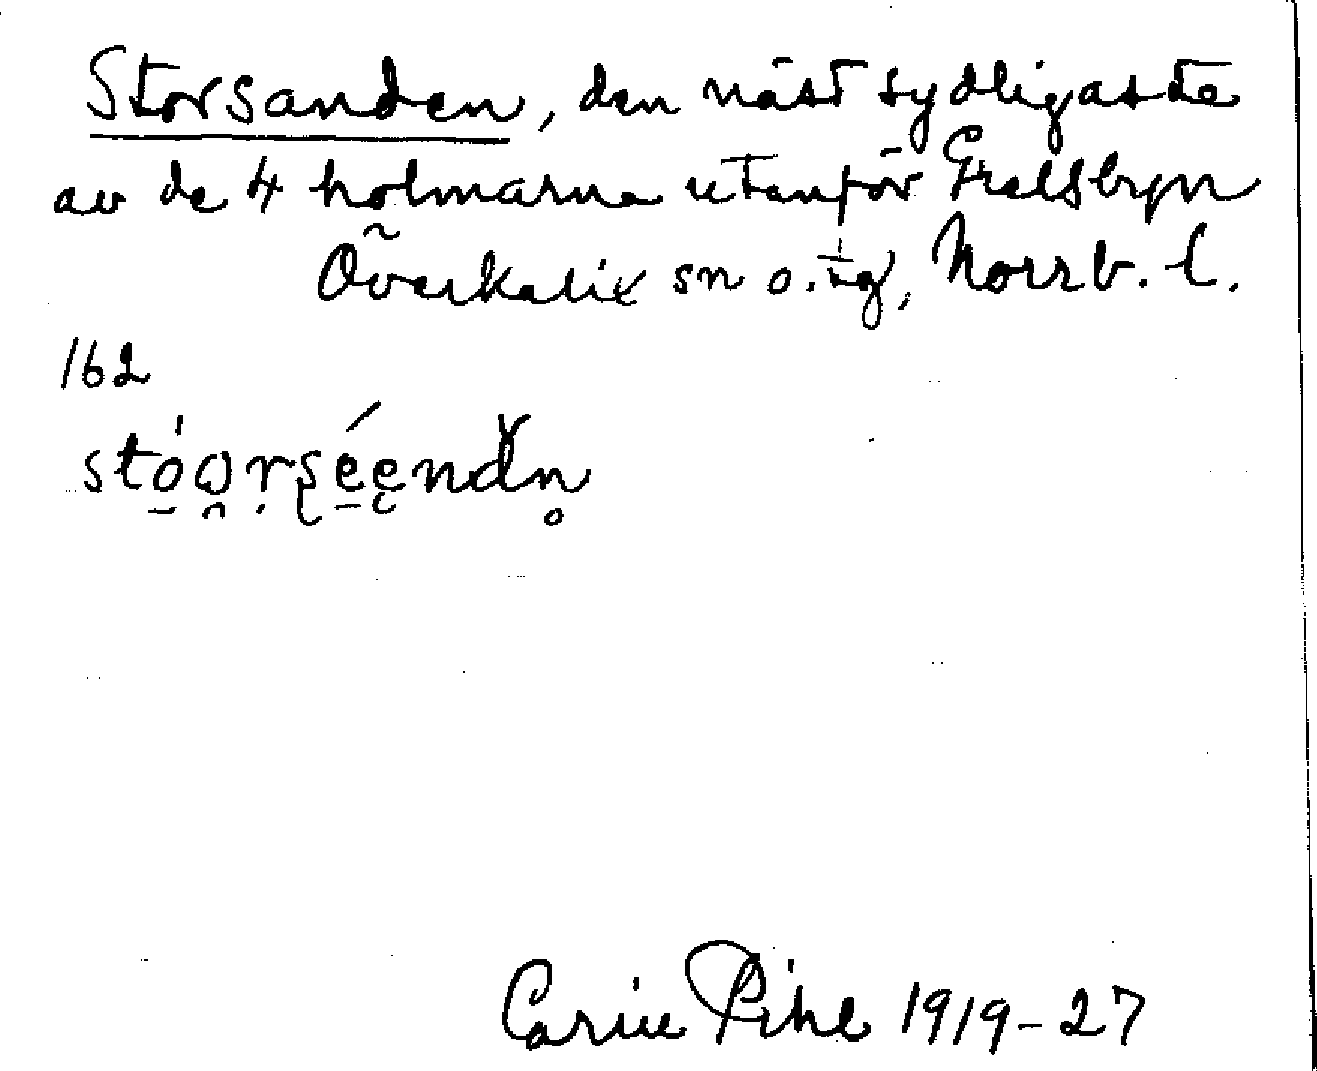 Storsanden, den näst sydligaste
av de 4 holmarna utanför Grelsbyn
Överkalix sn o. tg, Norrb. l.
162
stó̱o̯ṛʂé̱ęndn̥
Carin Pihl 1919-27